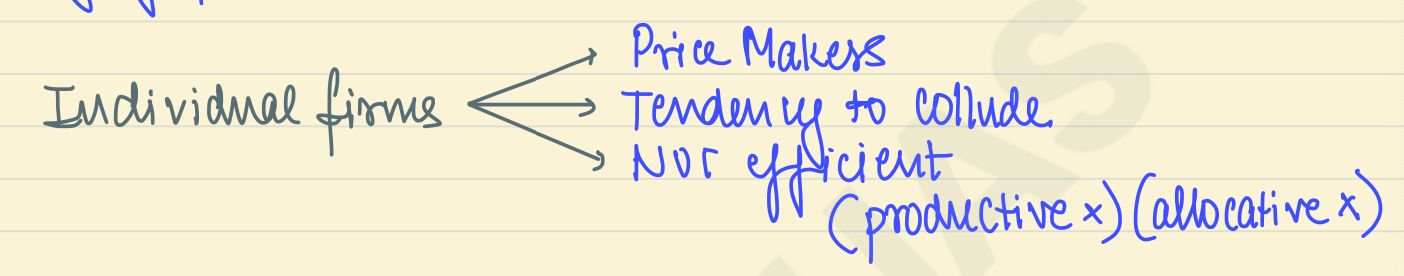 Individual firms
Price Makers
Tendency to collude
Not efficient
(productive x) (allocative x)
IAS